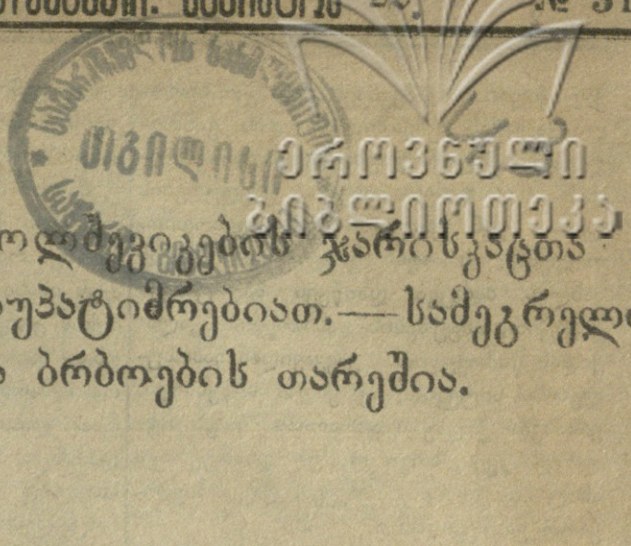 № 31
თბილისი
ეროვნული
ბიბლიოთეკა
ოლშევიკების ჯარისკაცთა
უპატიმრებიათ.— სამეგრელო
ბრბოების თარეშია.